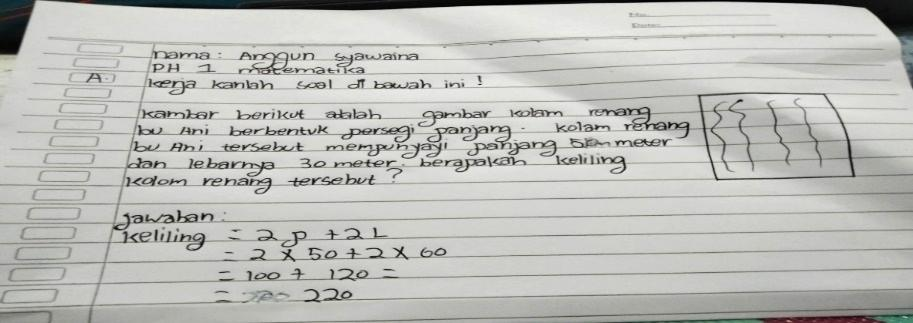 No:
Date:
nama : Anggun syawaina
PH 1 matematika
A. kerja kanlah soal di bawah ini !
kambar berikut adalah gambar kolam renang
bu Ani berbentuk persegi panjang. kolam renang
bu Ani tersebut mempunyayi panjang meter
dan lebarnya 30 meter. berapakah keliling
kolom renang tersebut ?
Jawaban :
keliling = 2 p + 2 L
= 2 x 50 + 2 x 60
= 100 + 120 =
= 220